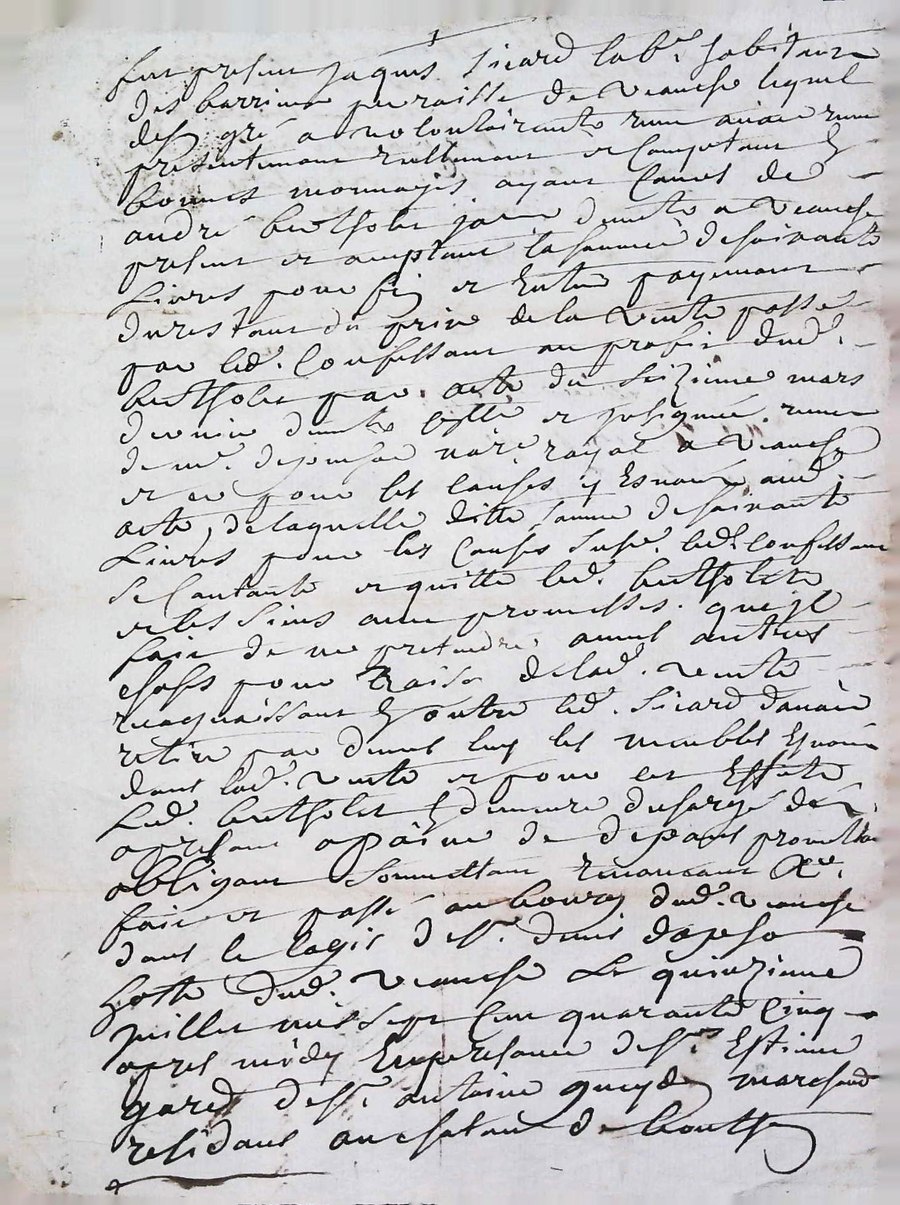 fut present Jaques Sicard lab.r habitant
des barrieres parroisse de veauche lequel
de gré a volontairement
presentement reellement et comptant
bonnes monnoyes ayant cours de
andré bertholet demeurant a veauche
present et aceptant la somme de soixante
Livres pour fin et entier payement
du restant du prix de la vente passé
par led. Confessant au profit dud.
bertholet par acte du seizieme mars
dernier
de m.e notre royal a veauche
et ce pour les causes y enoncé aud.
acte, de laquelle ditte somme de soixante
Livres pour les causes susd. led. confessant
se contante et quitte led. bertholet
et les siens avec promesses. qu'il
fait de ne pretendre, autres
choses pour raison de lad. vente
recognaissant outre led. Sicard d'avoir
retiré par devers luy les meubles enoncé
dans lad. vente et pour cet Effet
Led. bertholet demeure dechargé des
apresant a paine de depans promettant
obligant soumettant renoncant &c.
fait et passé au bourg dud. veauche
dans le logis de s.r denis
hotte dud. veauche Le quinzieme
juillet mil sept cen quarante cinq
apres midy En presance de s.r Estienne
de s.r antoine marchand
residant au chatau de bouth